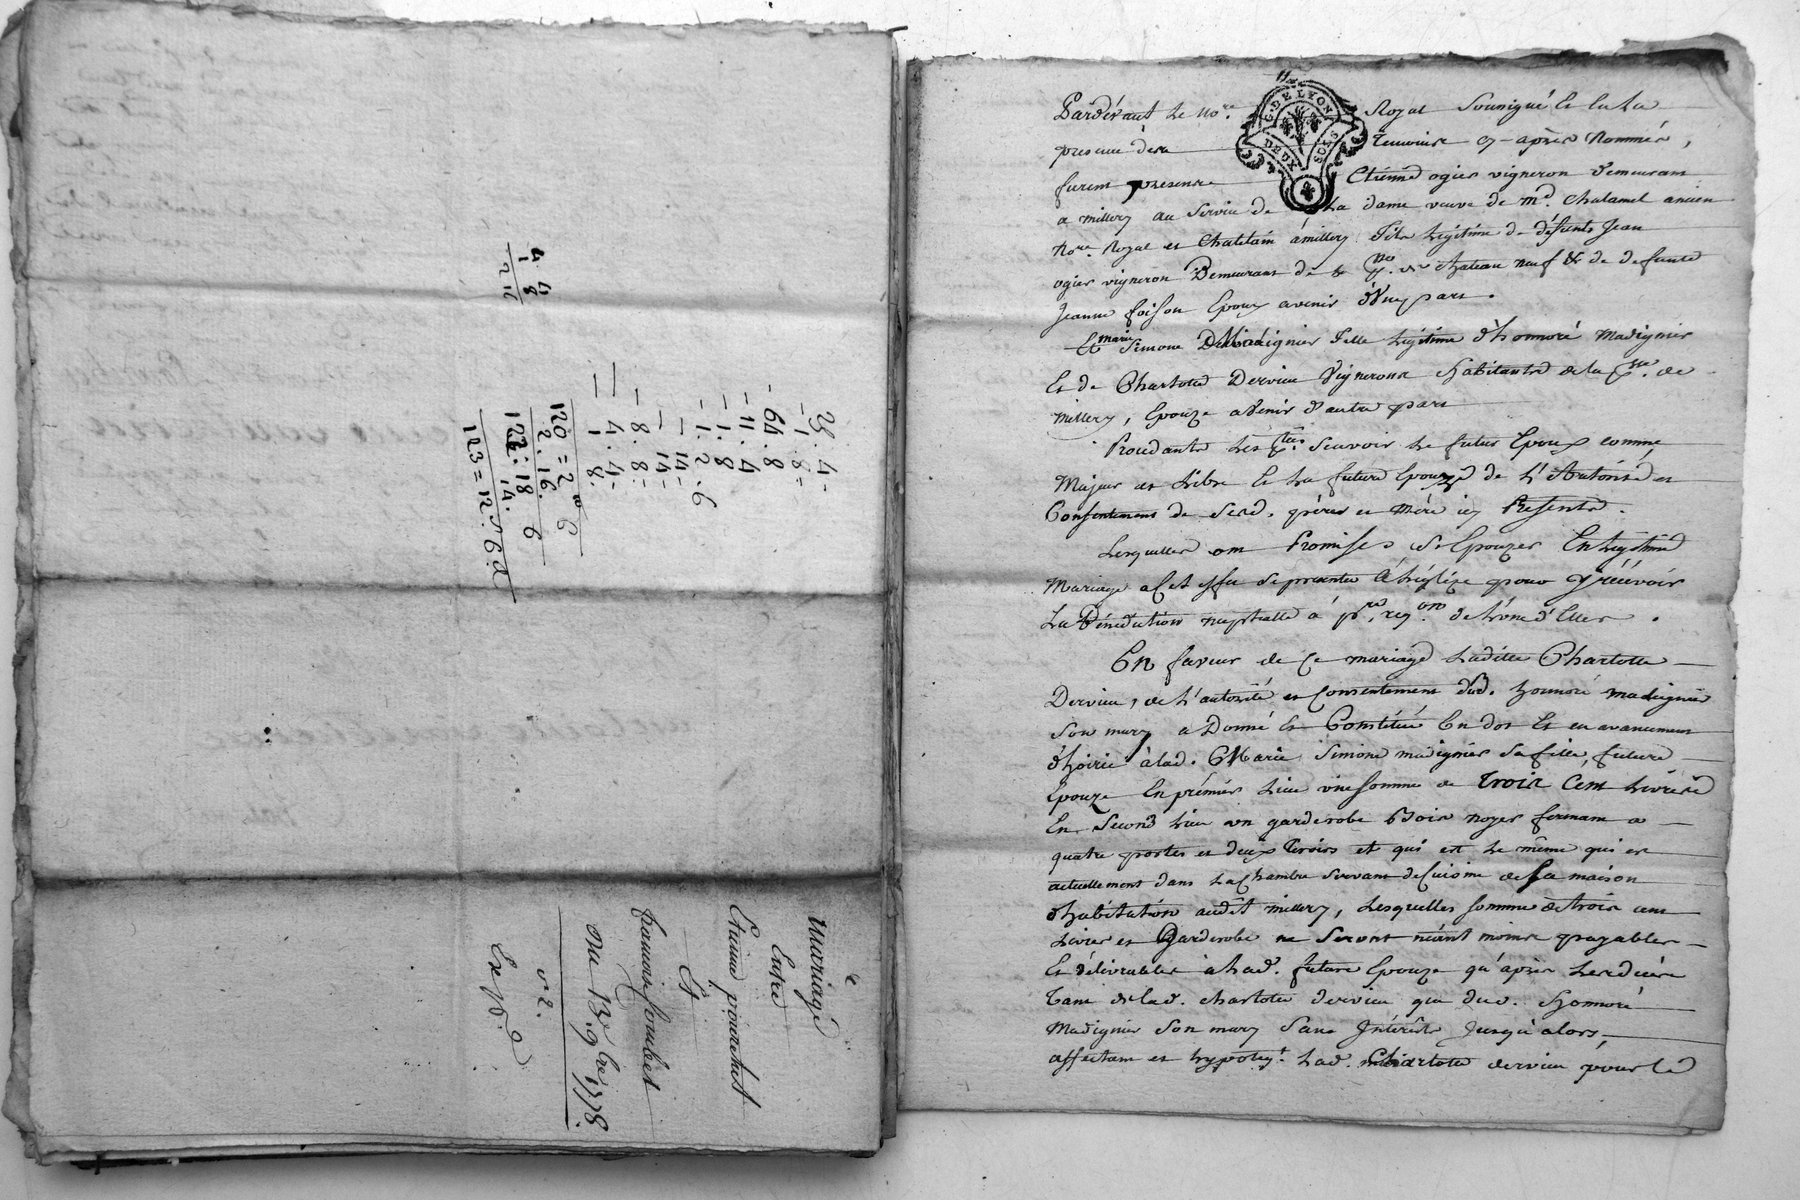 4. 4
1 8
2 16
25. 4-
- 1. 8-
- 64. 8
- 11. 4
- 1. 8
- 1. 2. 6
- 14-
- 14-
- 8. 8.
- 4. 4-
1 8.
120 = 2 6
2. 16.
123. 18 6
14.
123 = 12. 6 d
Mariage
Entre
Etienne
Et
françoise
Du 13. 9bre 1778.
Exp.
G. DE LYON
DEUX SOLS
Pardevant Le no.re Royal Sousigné Et en La
presence des Temoins cy-après Nommés,
furent presents Etienne ogier vigneron Demeurant
a millery au Service de La dame veuve de md. Chalamel ancien
No.re Royal et Chatelain a millery fils Legitime de défunts Jean
ogier vigneron Demeurant de chateau neuf & de defunte
Jeanne foison Epoux avenir d'Une part.
Et marie Simone Madignier fille Legitime d'honnoré Madignier
Et de Charlotte Dervieu Vignerons habitants de la psse. de
Millery, Epouze avenir d'autre part
Procedants Les pties. Scavoir Le futur Epoux comme
Majeur et Libre Et La future Epouze de L'Autorité et
Consentement de Sesd. pères et Mère icy Présents.
Lesquelles ont Promises de S'Epouzer En Legitime
Mariage a Cet effet Se presenter à L'église pour y reçevoir
La Bénédiction nuptialle à pre. reqon. de L'Une d'Elles.
En faveur de Ce mariage Ladite Charlotte
Dervieu, de L'autorité et Consentement dud. honnoré madignier
Son mary a Donné Et Constitué En dot Et en avancement
d'hoirie à lad. Marie Simone madignier Sa fille, future
Epouze En prémier Lieu une Somme de Trois Cent Livres
En Second Lieu un garderobe Bois noyer fermant a
quatre portes et deux tiroirs et qui est Le même qui est
actuellement dans La Chambre Servant de Cuisine de Sa maison
d'habitation audit millery, Lesquelles Somme de trois cent
Livres et Garderobe ne Seront néant moins payables
Et délivrables à Lad. future Epouze qu'après Le decès
Tant de lad. charlotte dervieu que dud. honnoré
Madignier Son mary Sans Intérêts Jusqu'alors,
affectant et hypoteqt. Lad. Charlotte dervieu pour Ce